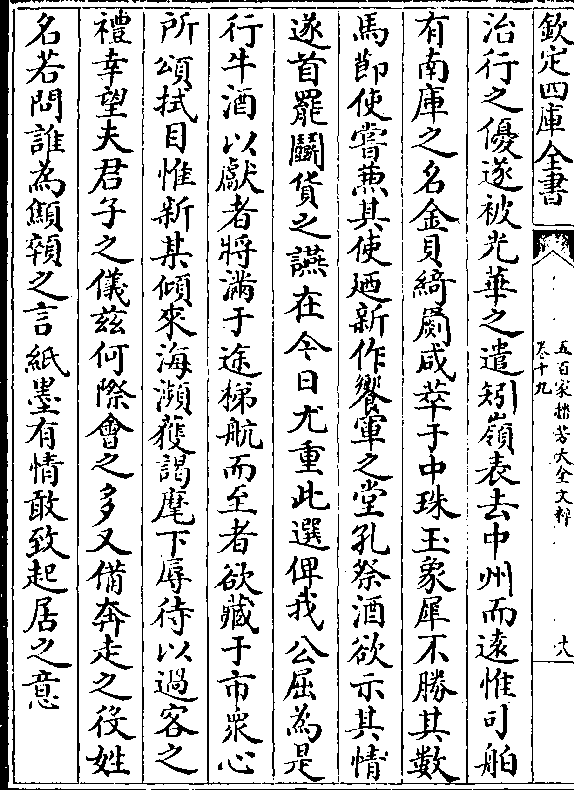 欽定四庫全書
五百家播芳大全文粹
卷十九
十八
治行之優遂被光華之遣矧嶺表去中州而逺惟可舶
有南庫之名金貝綺罽咸萃于中珠玉象犀不勝其數
馬郎使嘗兼其使廼新作饗軍之堂孔祭酒欲示其情
遂首罷鬭貨之讌在今日尤重此選俾我公屈為是
行牛酒以獻者將滿于途梯航而至者欲藏于市衆心
所頌拭目惟新某傾來海瀕獲謁麾下辱待以過客之
禮幸望夫君子之儀兹何際會之多又備奔走之役姓
名若問誰為顦顇之言紙墨有情敢致起居之意